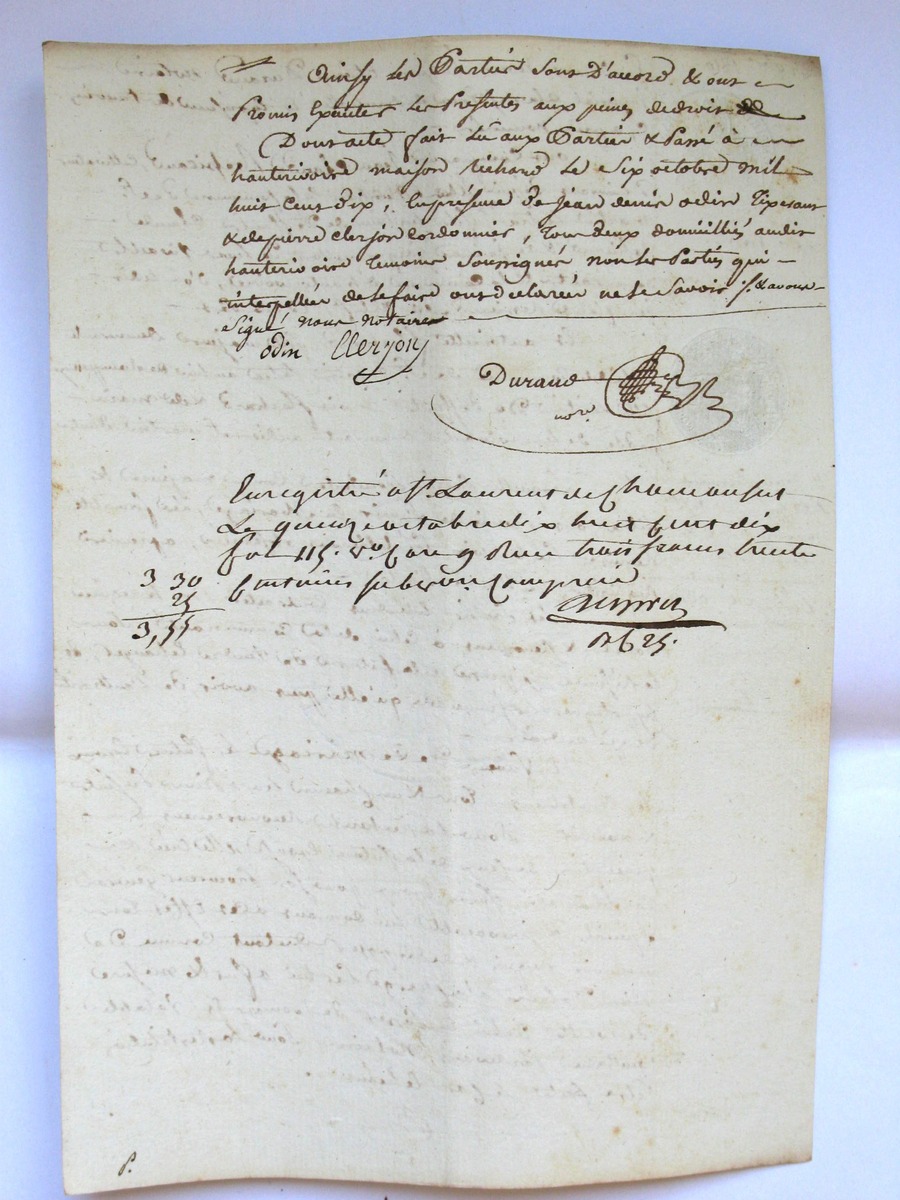 Ainsy les Parties sont D'accord & ont
Promis Exécuter les Presentes aux peines de droit
Dont acte fait Lû aux Parties & Passé à
hauterivoire maison Richard le Six octobre mil
huit Cent Dix, En présence De jean denis odin Tixerant
& de pierre Clerjon Cordonnier, Tous Deux domicilliés audit
hauterivoire Temoins Soussignés non les Parties qui
interpellées de le faire ont declarées ne le Savoir & avons
Signé nous notaire
odin Clerjon
Durand
nore.
Enregistré à St. Laurent de Chamousset
Le quinze octobre dix huit Cent dix
fol 115. vo. Case 9 Reçu trois francs trente
Centimes subvon. Comprise
3 30
25
3,55
R 625.
P.